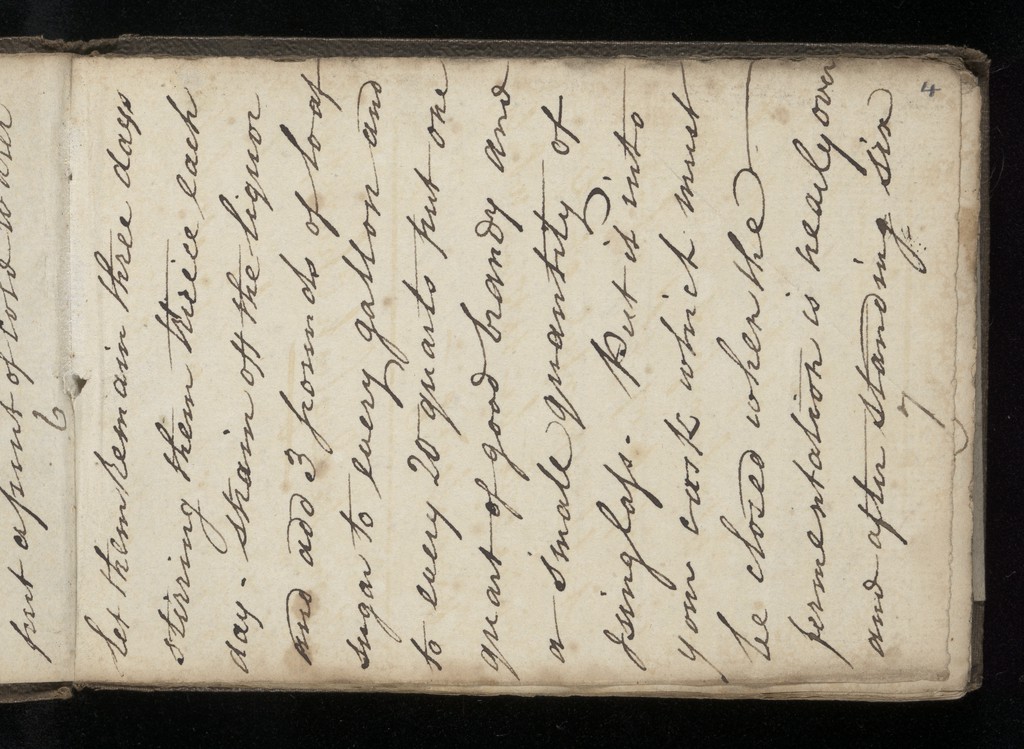 put a pint of cold water
6
4
let them remain three days
stirring them thrice each
day - strain off the liquor
and add 3 pounds of loaf
sugar to every gallon and
to every 20 quarts put one
quart of good brandy and
a small quantity of
Isinglass. Put it into
your cask which must
be closed when the
fermentation is nearly over
and after standing six
7